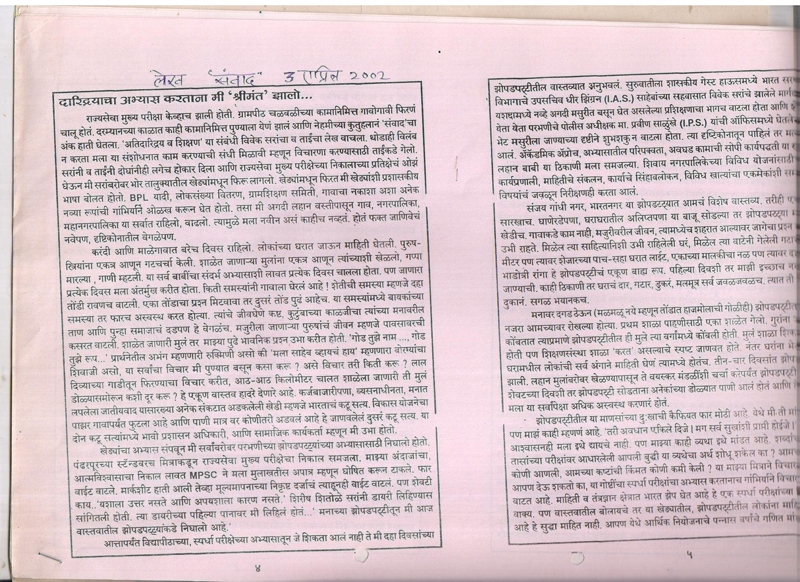 लेख "संवाद" 3 एप्रिल 2002
दारिद्र्याचा अभ्यास करताना मी 'श्रीमंत' झालो...
राज्यसेवा मुख्य परीक्षा केव्हाच झाली होती. ग्रामपीठ चळवळीच्या कामानिमित्त गावोगावी फिरणं
चालू होतं. दरम्यानच्या काळात काही कामानिमित्त पुण्याला येणं झालं आणि नेहमीच्या कुतुहलानं 'संवाद'चा
अंक हाती घेतला. 'अतिदारिद्र्य व शिक्षण' या संबंधी विवेक सरांचा व ताईचा लेख वाचला. थोडाही विलंब
न करता मला या संशोधनात काम करण्याची संधी मिळावी म्हणून विचारणा करण्यासाठी ताईकडे गेलो.
सरांनी व ताईनी दोघांनीही लगेच होकार दिला आणि राज्यसेवा मुख्य परीक्षेच्या निकालाच्या प्रतिक्षेचं ओझं
घेऊन मी सरांबरोबर भोर तालुक्यातील खेड्यांमधून फिरू लागलो. खेड्यांमधून फिरत मी खेड्यांशी प्रशासकीय
भाषा बोलत होतो. BPL यादी, लोकसंख्या वितरण, ग्रामशिक्षण समिती, गावाचा नकाशा अशा अनेक
नव्या रूपांची गांभिर्याने ओळख करून घेत होतो. तसा मी अगदी लहान वस्तीपासून गाव, नगरपालिका,
महानगरपालिका या सर्वात राहिलो, वाढलो. त्यामुळे मला नवीन असं काहीच नव्हतं. होतं फक्त जाणिवेचं
नवेपण, दृष्टिकोनातील वेगळेपण.
करंदी आणि माळेगावात बरेच दिवस राहिलो. लोकांच्या घरात जाऊन माहिती घेतली. पुरुष-
स्त्रियांना एकत्र आणून गटचर्चा केली. शाळेत जाणाऱ्या मुलांना एकत्र आणून त्यांच्याशी खेळलो, गप्पा
मारल्या, गाणी म्हटली. या सर्व बाबींचा संदर्भ अभ्यासाशी लावत प्रत्येक दिवस चालला होता. पण जाणारा
प्रत्येक दिवस मला अंतर्मुख करीत होता. किती समस्यांनी गावाला घेरलं आहे ! शेतीची समस्या म्हणजे दहा
तोंडी रावणच वाटली. एका तोंडाचा प्रश्न मिटवावा तर दुसरं तोंड पुढं आहेच. या समस्यांमध्ये बायकांच्या
समस्या तर फारच अस्वस्थ करत होत्या. त्यांचे जीवघेणे कष्ट, कुटुंबाच्या काळजीचा त्यांच्या मनावरील
ताण आणि पुन्हा समाजाचं दडपण हे वेगळंच. मजुरीला जाणाऱ्या पुरुषांचं जीवन म्हणजे पावसावरची
कसरत वाटली. शाळेत जाणारी मुलं तर माझ्या पुढे भावनिक प्रश्न उभा करीत होती. 'गोड तुझे नाम ..., गोड
तुझे रूप...' प्रार्थनेतील अभंग म्हणणारी रुक्मिणी असो की 'मला साहेब व्हायचं हाय' म्हणणारा बोरग्यांचा
शिवाजी असो, या सर्वांचा विचार मी पुण्यात बसून कसा करू ? असे विचार तरी किती करू ? लाल
दिव्याच्या गाडीतून फिरण्याचा विचार करीत, आठ-आठ किलोमीटर चालत शाळेला जाणारी ती मुलं
डोळ्यासमोरून कशी दूर करू ? हे एकूण वास्तव हादरे देणारे आहे. कर्जबाजारीपणा, व्यसनाधीनता, मनात
लपलेला जातीयवाद यासारख्या अनेक संकटात अडकलेली खेडी म्हणजे भारताचं कटू सत्य, विकास योजनेचा
पाझर गावापर्यंत फुटला आहे आणि पाणी मात्र वर कोणीतरी अडवलं आहे हे जाणवलेलं दुसरं कटू सत्य. या
दोन कटू सत्यांमध्ये भावी प्रशासन अधिकारी, आणि सामाजिक कार्यकर्ता म्हणून मी उभा होतो.
खेड्यांचा अभ्यास संपवून मी सर्वांबरोबर परभणीच्या झोपडपट्ट्यांच्या अभ्यासासाठी निघालो होतो.
पंढरपूरच्या स्टॅन्डवरच मित्राकडून राज्यसेवा मुख्य परीक्षेचा निकाल समजला. माझ्या अंदाजांचा,
आत्मविश्वासाचा निकाल लावत MPSC ने मला मुलाखतीस अपात्र म्हणून घोषित करून टाकले. फार
वाईट वाटले. मार्कशीट हाती आली तेव्हा मूल्यमापनाच्या निकृष्ट दर्जाचं त्याहूनही वाईट वाटलं. पण शेवटी
काय..'यशाला उत्तर नसते आणि अपयशाला कारण नसते.' शिरीष शितोळे सरांनी डायरी लिहिण्यास
सांगितली होती. त्या डायरीच्या पहिल्या पानावर मी लिहिलं होतं...' मनाच्या झोपडपट्टीतून मी आज
वास्तवातील झोपडपट्ट्यांकडे निघालो आहे.'
आत्तापर्यंत विद्यापीठाच्या, स्पर्धा परीक्षेच्या अभ्यासातून जे शिकता आलं नाही ते मी दहा दिवसांच्या
४
झोपडपट्टीतील वास्तव्यात अनुभवलं. सुरुवातीला शासकीय गेस्ट हाऊसमध्ये भारत
विभागाचे उपसचिव धीर झिंग्रन (I.A.S.) साहेबांच्या सहवासात विवेक सरांचे झालेले
यशदामध्ये नव्हे अगदी मसुरीत बसून घेत असलेल्या प्रशिक्षणाचा भागच वाटला होता आणि
येता येता परभणीचे पोलीस अधीक्षक मा. प्रवीण साळुंखे (I.P.S.) यांची ऑफिसमध्ये घेतलेली
भेट मसुरीला जाण्याच्या दृष्टीने शुभशकुन वाटला होता. त्या दृष्टिकोनातून पाहिलं तर
आलं. अ‍ॅकॅडमिक अ‍ॅप्रोच, अभ्यासातील परिपक्वता, अवघड कामाची सोपी कार्यपद्धती या
लहान बाबी या ठिकाणी मला समजल्या. शिवाय नगरपालिकेच्या विविध योजनांसाठी
कार्यप्रणाली, माहितीचे संकलन, कार्याचे सिंहावलोकन, विविध खात्यांचा एकमेकांशी
विषयांचं जवळून निरीक्षणही करता आलं.
संजय गांधी नगर, भारतनगर या झोपडपट्ट्यात आमचं विशेष वास्तव्य. तरीही
सारखाच. घाणेरडेपणा, घराघरातील अलिप्तपणा या बाजू सोडल्या तर झोपडपट्ट्या
खेडीच. गावाकडे काम नाही, मजुरीवरील जीवन, त्यामध्येच शहरात आल्यावर जागेचा
उभी राहते. मिळेल त्या साहित्यानिशी उभी राहिलेली घरं, मिळेल त्या वाटेनी गेलेली
मीटर पण त्यावर शेजारच्या पाच-सहा घरात लाईट, एकाच्या मालकीचा नळ पण त्यावर
भाडोत्री रांगा हे झोपडपट्टीचं एकूण बाह्य रूप. पहिल्या दिवशी तर माझी इच्छाच
जाण्याची. काही ठिकाणी तर घराचं दार, गटार, डुकरं, मलमूत्र सर्व जवळजवळच. त्यात
दुकानं. सगळं भयानकच.
मनावर दगड ठेऊन (मळमळू नये म्हणून तोंडात हाजमोलाची गोळीही)
नजरा आमच्यावर रोखल्या होत्या. प्रथम शाळा पाहणीसाठी एका शाळेत गेलो. गुरांना
कोंबतात त्याप्रमाणे झोपडपट्टीतील ही मुले त्या वर्गामध्ये कोंबली होती. मुलं शाळा
होती पण शिक्षणसंस्था शाळा 'करत' असल्याचे स्पष्ट जाणवत होते. नंतर घरांना
घरामधील लोकांची सर्व अंगाने माहिती घेणं त्यामध्येच होतंच. तीन-चार दिवसांत
झाली. लहान मुलांबरोबर खेळण्यापासून ते वयस्कर मंडळींशी चर्चा करेपर्यंत
शेवटच्या दिवशी तर झोपडपट्टी सोडताना अनेकांच्या डोळ्यात पाणी आलं होतं आणि
मला या सर्वांपेक्षा अधिक अस्वस्थ करणारं होतं.
झोपडपट्टीतील या माणसांच्या दुःखाची कैफियत फार मोठी आहे.
पण माझं काही म्हणणं आहे. 'तरी अवधान एकिले दिजे। मग सर्व सुखांशी प्राप्ती होईजे।'
आश्वासनही मला इथे द्यायचे नाही. पण माझ्या काही व्यथा इथे मांडत आहे.
तासाच्या परीक्षांवर आधारलेली आपली बुद्धी या व्यथेचा अर्थ शोधू शकेल का ?
कोणी आणली, आमच्या कष्टांची किंमत कोणी कमी केली ? या माझ्या मित्राने
आपण देऊ शकतो का, या गोष्टींचा स्पर्धा परीक्षांचा अभ्यास करतानाच गांभिर्यानं
वाटत आहे. माहिती व तंत्रज्ञान क्षेत्रात भारत झेप घेत आहे हे एक स्पर्धा परीक्षांच्या
वाक्य. पण वास्तवात बोलायचे तर या खेड्यातील, झोपडपट्टीतील लोकांना
आहे हे सुद्धा माहित नाही. आपण येथे आर्थिक नियोजनाचे पन्नास वर्षांचे गणित
५